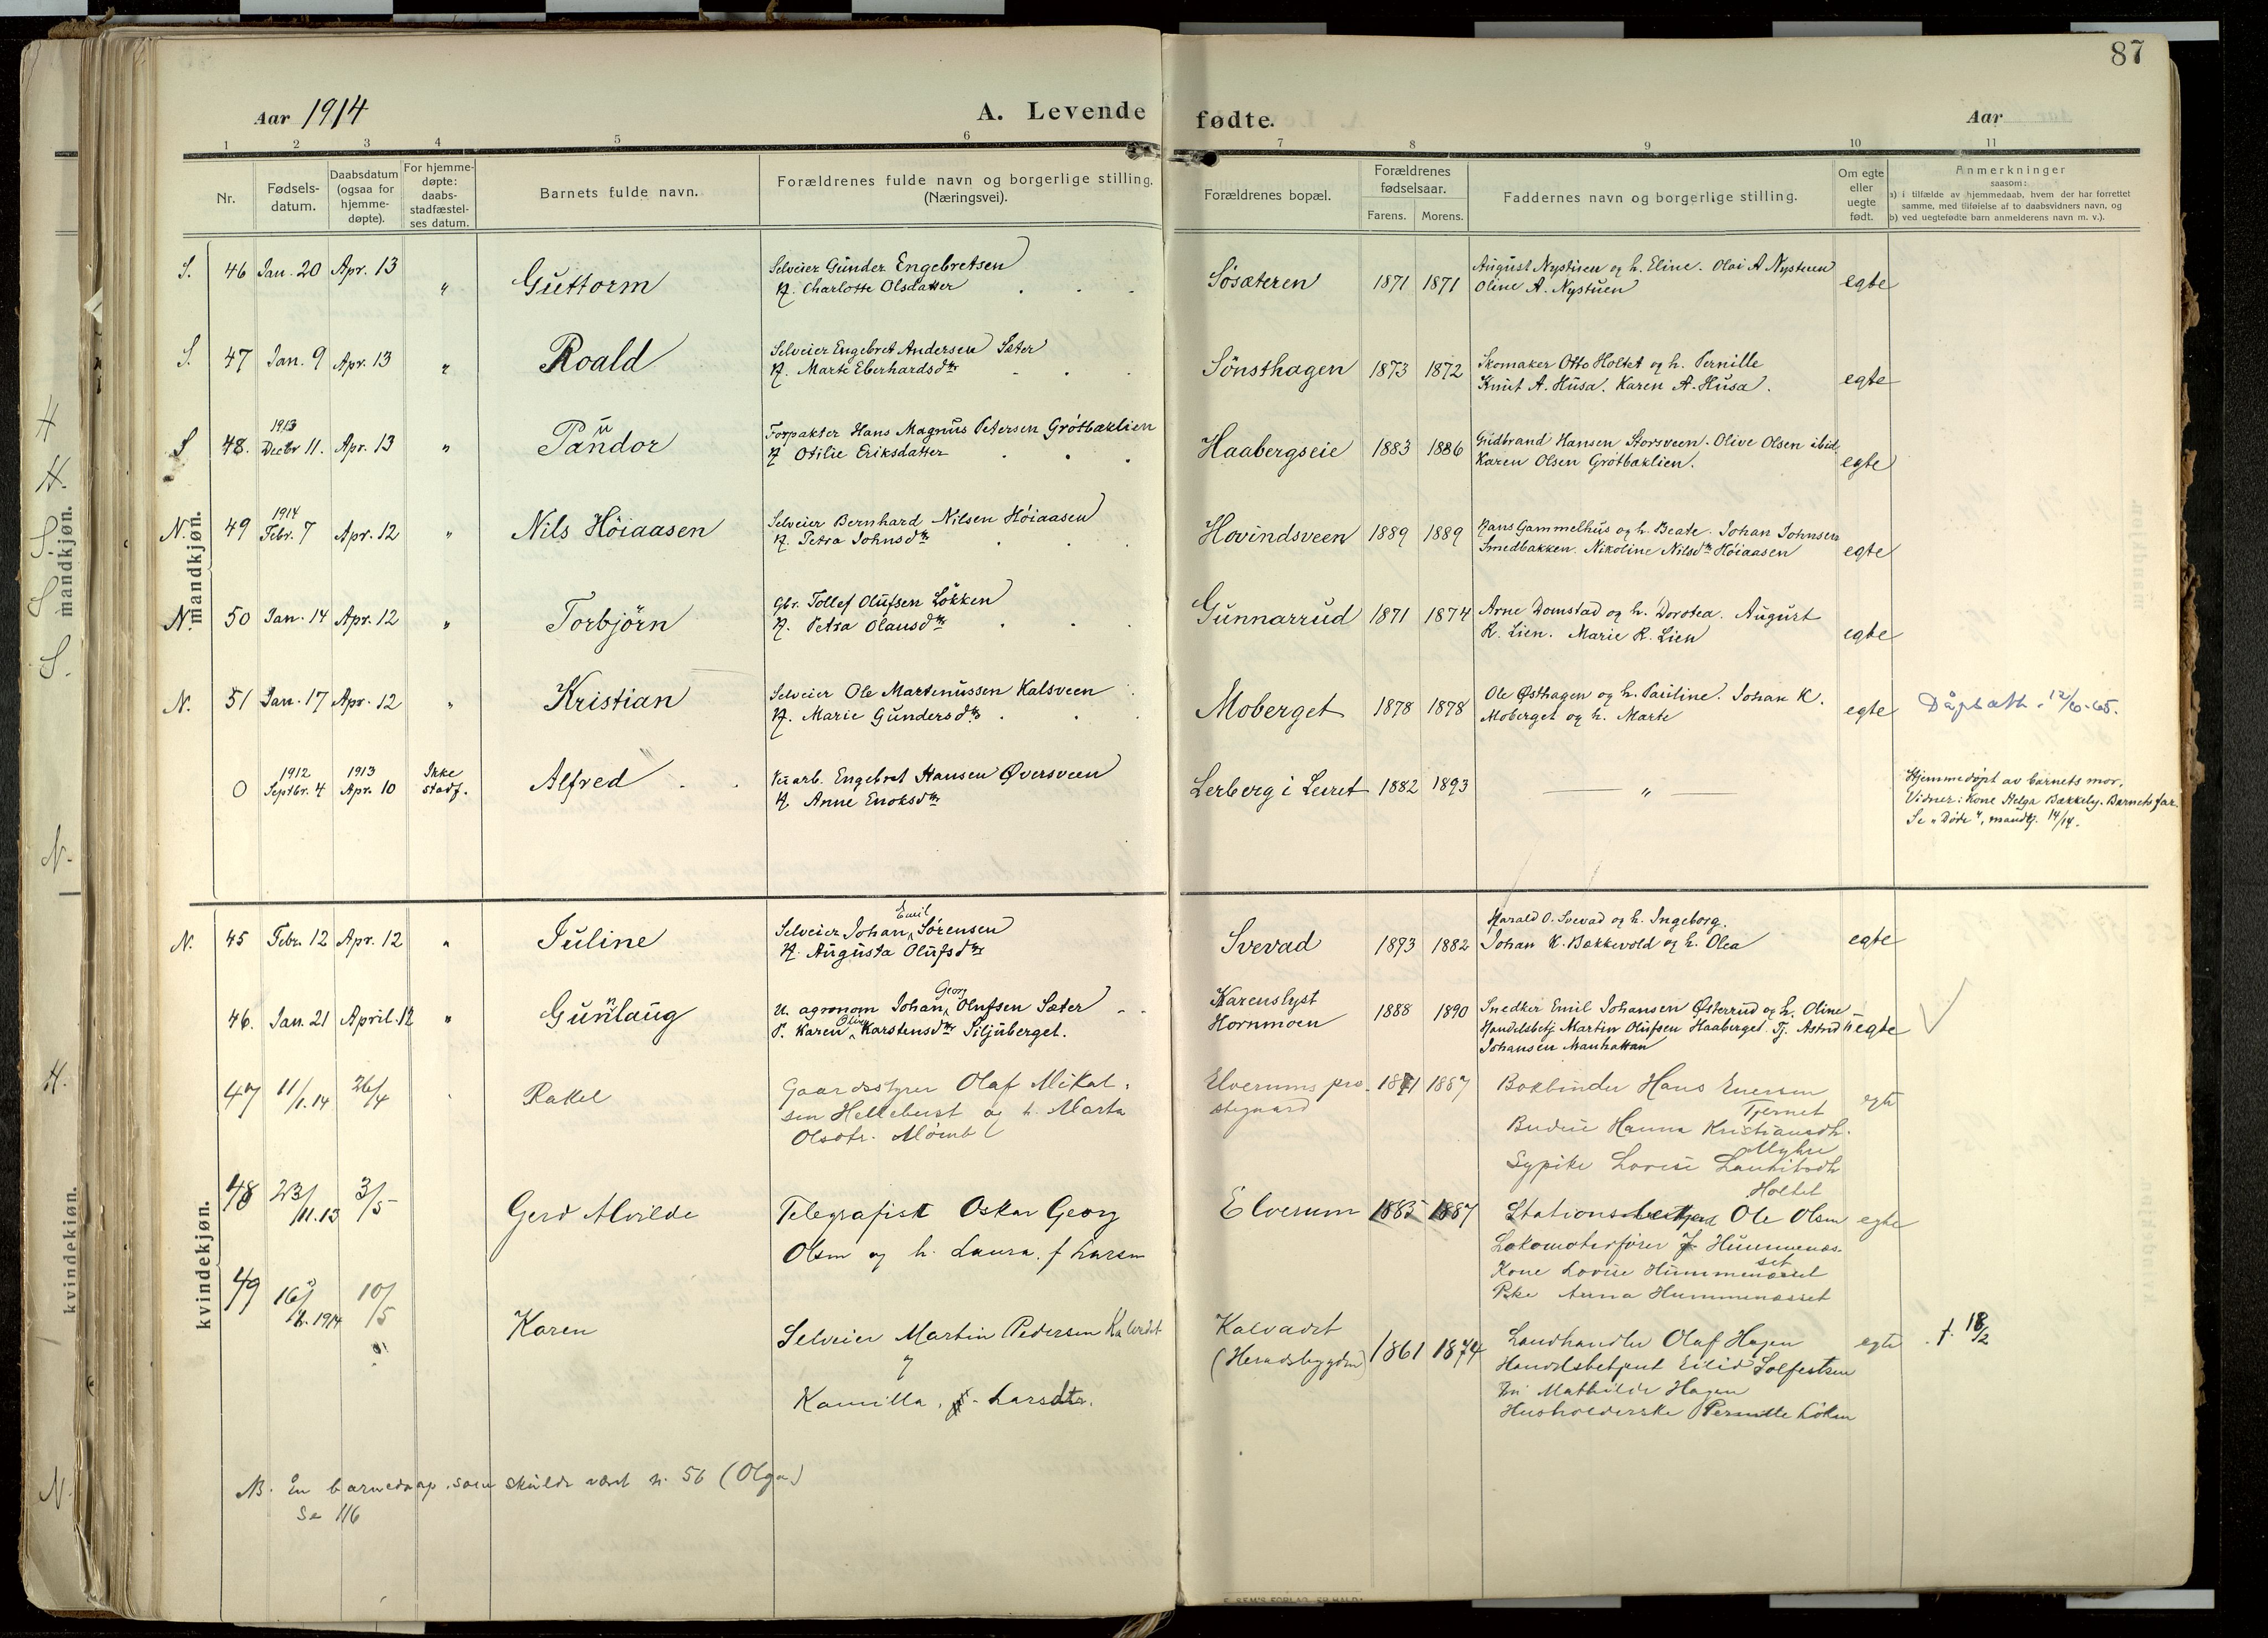 87
Aar 1914
A. Levende fødte.
Aar
1 2 3 4 5 6 7 8 9 10 11
Nr.
Fødsels-
datum.
Daabsdatum
(ogsaa for
hjemme-
døpte).
For hjemme-
døpte:
daabs-
stadfæstel-
ses datum.
Barnets fulde navn.
Forældrenes fulde navn og borgerlige stilling.
(Næringsvei).
Forældrenes bopæl.
Forældrenes
fødselsaar.
Farens. Morens.
Faddernes navn og borgerlige stilling.
Om egte
eller
uegte
født.
Anmerkninger
saasom:
a) i tilfælde av hjemmedaab, hvem der har forrettet
samme, med tilføielse af to daabsvidners navn, og
b) ved uegtefødte barn anmelderens navn m. v.).
mandkjøn.
S. 46 Jan. 20 Apr. 13 " Guttorm
Selveier Gunder Engebretsen
H. Charlotte Olsdatter
Sösæteren 1871 1871
August Nystuen og h. Eline. Olai A Nystuen
Oline A. Nystuen
egte
S. 47 Jan. 9 Apr. 13 " Roald
Selveier Engebret Andersen Sæter
H. Marte Eberhardsdtr
Sönsthagen 1873 1872
Skomaker Otto Holtet og h. Pernille
Knut A. Husa. Karen A. Husa.
egte
S 48. 1913 Decbr 11. Apr. 13 " Pandor
Forpakter Hans Magnus Petersen Grötbæklien
H Otilie Eriksdatter
Haabergseie 1883 1886
Gudbrand Hansen Storsveen. Olive Olsen ibid.
Karen Olsen Grötbæklien.
egte
N. 49 1914 Febr. 7 Apr. 12 " Nils Höiaasen
Selveier Bernhard Nilsen Höiaasen
H. Petra Johnsdtr
Hovindsveen 1889 1889
Hans Gammelhus og h. Beate. Johan Johnsen
Smedbakken. Nikoline Nilsdtr Höiaasen
egte
N. 50 Jan. 14 Apr. 12 " Torbjörn
Gbr. Tollef Olufsen Lökken
H. Petra Olausdtr
Gunnarrud 1871 1874
Arne Domstad og h. Dorotea. August
R. Lien. Marie R. Lien
egte
N. 51 Jan. 17 Apr. 12 " Kristian
Selveier Ole Martenussen Kalsveen
H. Marie Gundersdtr
Moberget 1878 1878
Ole Østhagen og h. Pauline. Johan K.
Moberget og h. Marte
egte
Dåpsatt. 12/6-65.
0 1912 Septbr. 4 1913 Apr. 10 Ikke stadf. Alfred
Engebret Hansen Øversveen
H Anne Enoksdtr
Lerberg i Leiret 1882 1893
"
Hjemmedøpt av barnets mor.
Vidner: Kone Helga Bækkely. Barnets far.
Se "Døde", mandkj. 14/14.
kvindekjøn.
N. 45 Febr. 12 Apr. 12 " Juline
Emil
Selveier Johan Sörensen
H. Augusta Olufsdtr
Svevad 1873 1882
Harald O. Svevad og h. Ingeborg.
Johan K. Bækkevold og h. Olea
egte
46. Jan. 21 April. 12 " Gunlaug
Georg
U. agronom Johan Olufsen Sæter
P. Karen Oline Karstensdtr Siljuberget.
Karenslyst
Hornmoen
1888 1890
Snedker Emil Johansen Østerrud og h. Oline
Handelsbetj Martin Olufsen Haaberget. Tj. Astrid
Johansen Manhattan
uegte
47 11/1.14 26/4 Rakel
Gaardsstyrer Olaf Mikal-
sen Hellebust og h. Marta
Olsdtr.
Elverums pre-
stegaard
1871 1887
Bokbinder Hans Enersen
Tjernet
Budeie Hanna Kristiansdtr.
Myhre
Sypike Lovise
Holtet
egte
48 23/11.13 3/5 Gerd Alvilde
Telegrafist Oskar Georg
Olsen og h. Laura f. Larsen
Elverum 1885 1887
Ole Olsen
Lokomotivfører J Hummenæs-
set
Kone Lovise Hummenæsset
Pike Anna Hummenæsset
egte
49 16/2. 1914 10/5 Karen
Selveier Martin Pedersen Kalvadet
og
Kamilla, f. Larsdtr.
Kalvadet
(Heradsbygden)
1861 1874
Landhandler Olaf Hagen
Handelsbetjent Eilid Solfestsen
Fru Mathilde Hagen
Husholderske Pernille Løken
egte
† 18/2
NB. En barnedaap som skulde vært n. 56 (Olga)
Se 116